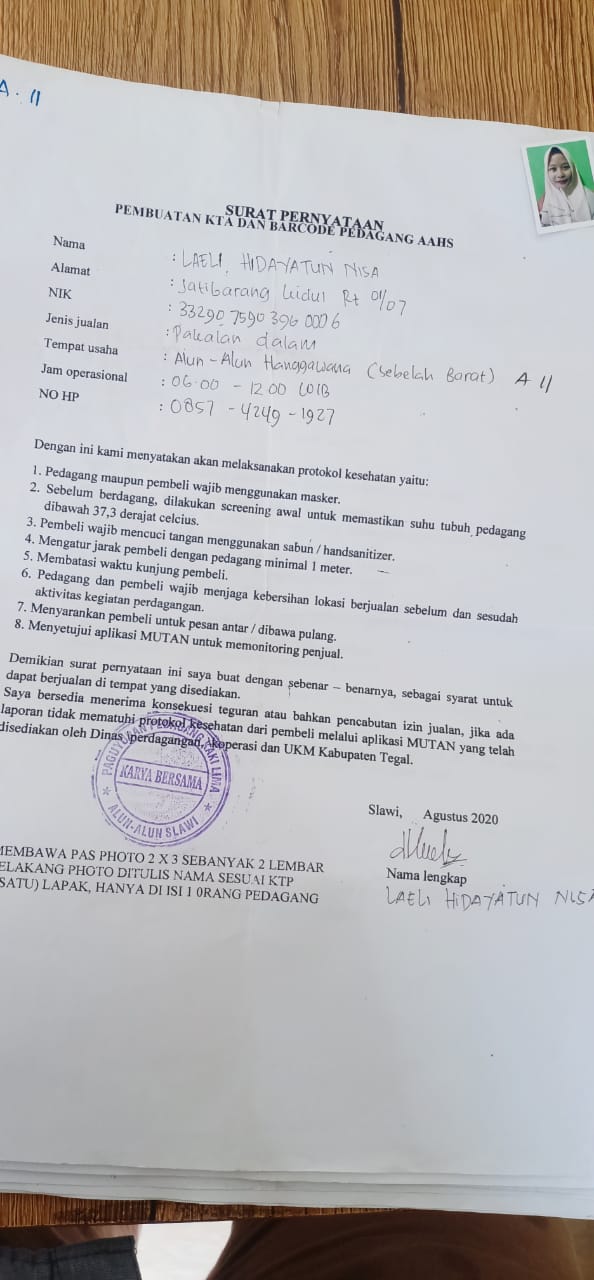 A. 11
SURAT PERNYATAAN
PEMBUATAN KTA DAN BARCODE PEDAGANG AAHS
Nama : LAELI, HIDAYATUN NISA
Alamat : Jatibarang kidul Rt 01/07
NIK : 3329075903960006
Jenis jualan : Pakaian dalam
Tempat usaha : Alun-Alun Hanggawana (Sebelah Barat) A 11
Jam operasional : 06.00 - 12.00 WIB
NO HP : 0857 - 4249 - 1927
Dengan ini kami menyatakan akan melaksanakan protokol kesehatan yaitu:
1. Pedagang maupun pembeli wajib menggunakan masker.
2. Sebelum berdagang, dilakukan screening awal untuk memastikan suhu tubuh pedagang
dibawah 37,3 derajat celcius.
3. Pembeli wajib mencuci tangan menggunakan sabun / handsanitizer.
4. Mengatur jarak pembeli dengan pedagang minimal 1 meter.
5. Membatasi waktu kunjung pembeli.
6. Pedagang dan pembeli wajib menjaga kebersihan lokasi berjualan sebelum dan sesudah
aktivitas kegiatan perdagangan.
7. Menyarankan pembeli untuk pesan antar / dibawa pulang.
8. Menyetujui aplikasi MUTAN untuk memonitoring penjual.
Demikian surat pernyataan ini saya buat dengan sebenar – benarnya, sebagai syarat untuk
dapat berjualan di tempat yang disediakan.
Saya bersedia menerima konsekuesi teguran atau bahkan pencabutan izin jualan, jika ada
laporan tidak mematuhi protokol kesehatan dari pembeli melalui aplikasi MUTAN yang telah
disediakan oleh Dinas perdagangan, koperasi dan UKM Kabupaten Tegal.
PAGUYUBAN PEDAGANG KAKI LIMA
KARYA BERSAMA
ALUN-ALUN SLAWI
Slawi, Agustus 2020
Nama lengkap
LAELI HIDAYATUN NISA
MEMBAWA PAS PHOTO 2 X 3 SEBANYAK 2 LEMBAR
ELAKANG PHOTO DITULIS NAMA SESUAI KTP
SATU) LAPAK, HANYA DI ISI 1 0RANG PEDAGANG